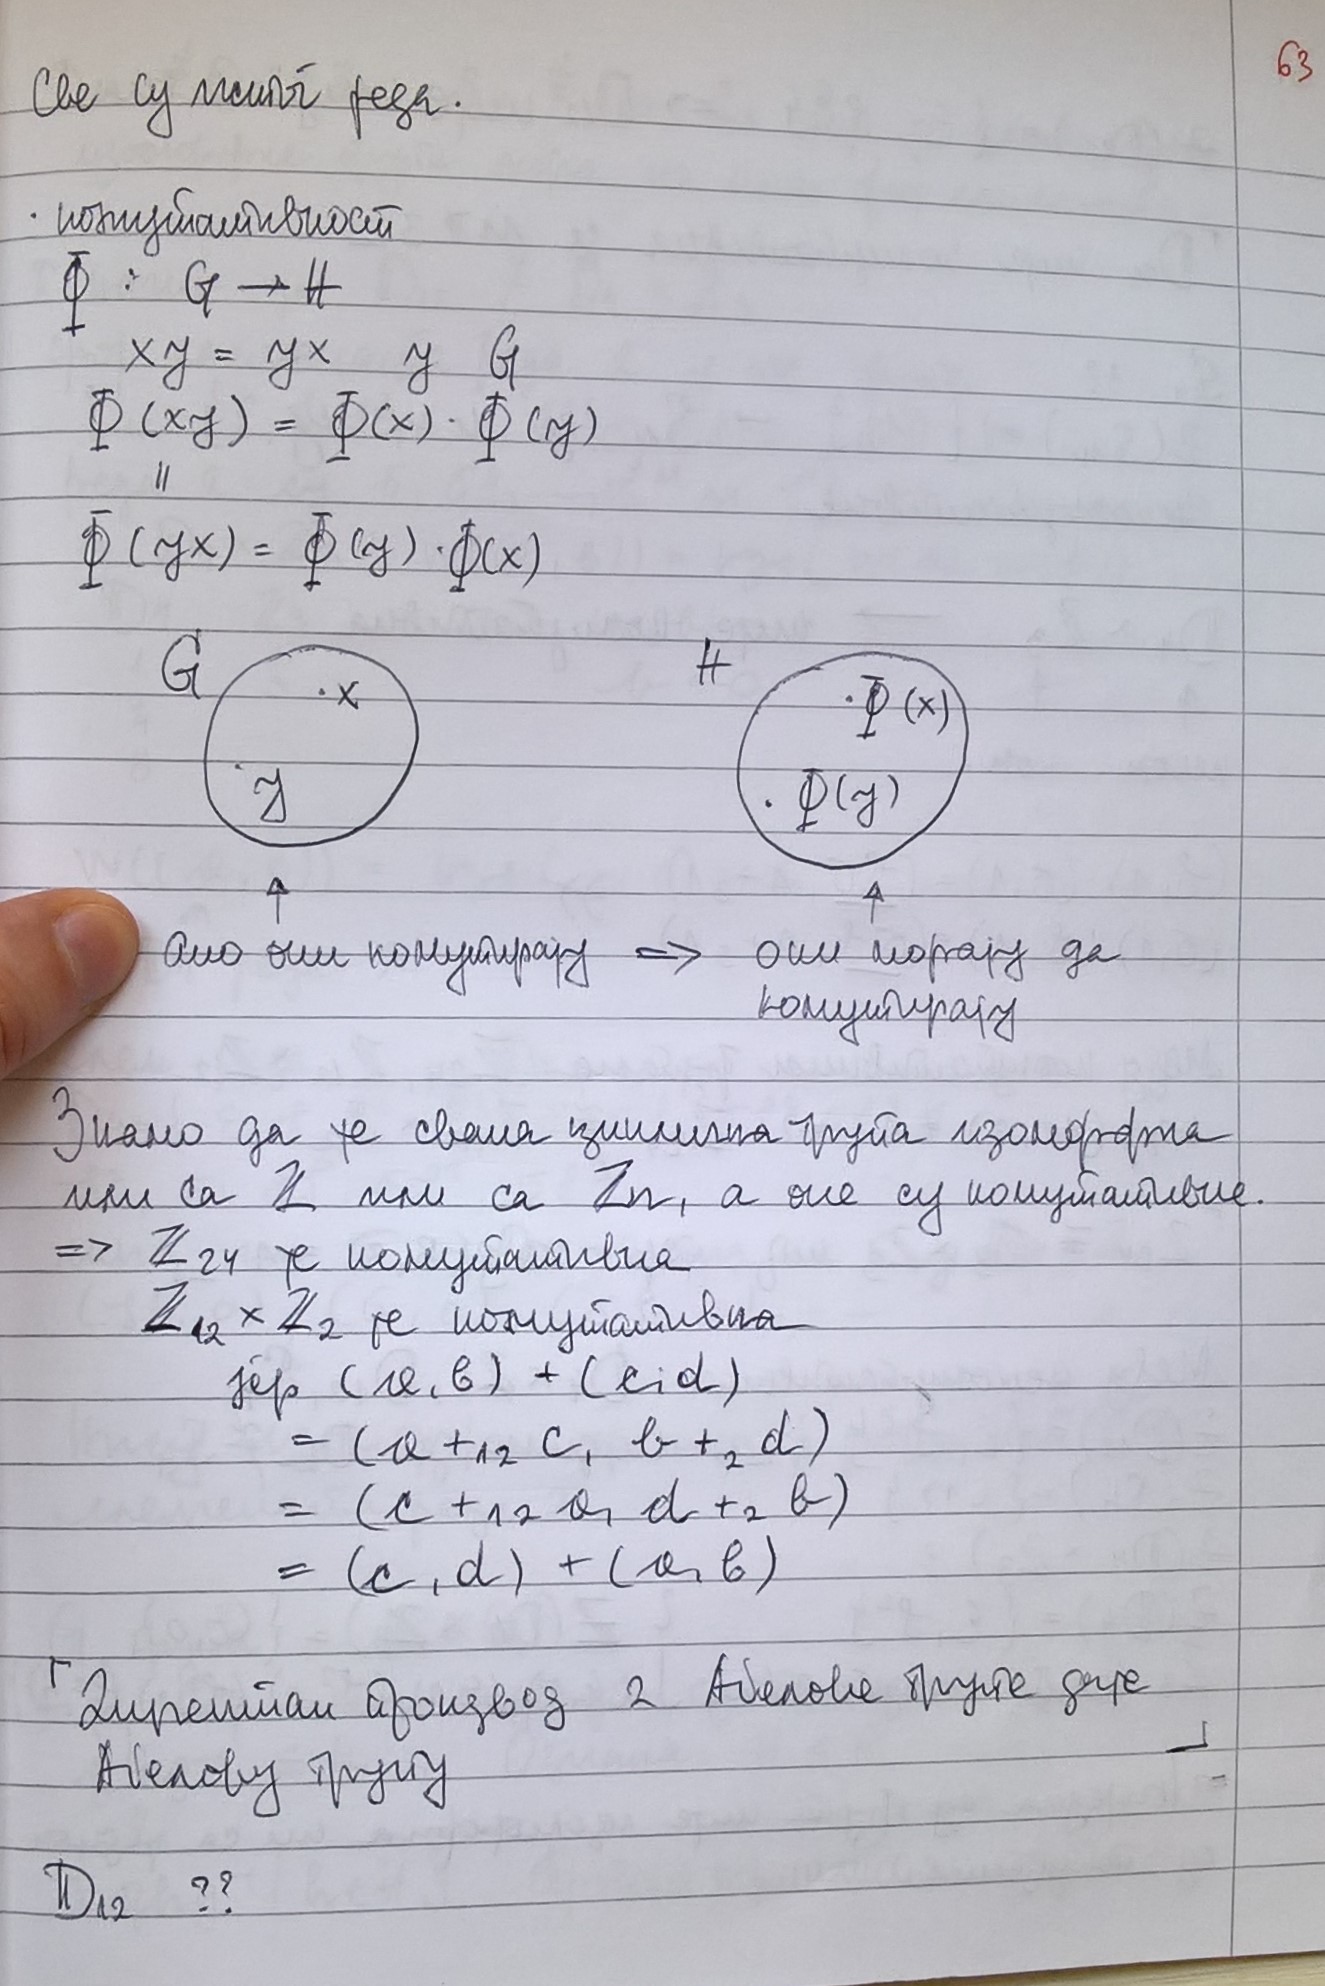 63
Све су истог реда.
· комутативност
Φ : G → H
xy = yx у G
Φ(xy) = Φ(x) · Φ(y)
=
Φ(yx) = Φ(y) · Φ(x)
G · x H · Φ(x)
· y · Φ(y)
↑ ↑
ако они комутирају => они морају да
комутирају
Знамо да је свака циклична група изоморфна
или са ℤ или са ℤn, а оне су комутативне.
=> ℤ24 је комутативна
ℤ12 × ℤ2 је комутативна
јер (a, b) + (c, d)
= (a +12 c, b +2 d)
= (c +12 a, d +2 b)
= (c, d) + (a, b)
⌈ Директан производ 2 Абелове групе даје
Абелову групу ⌋
D12 ??